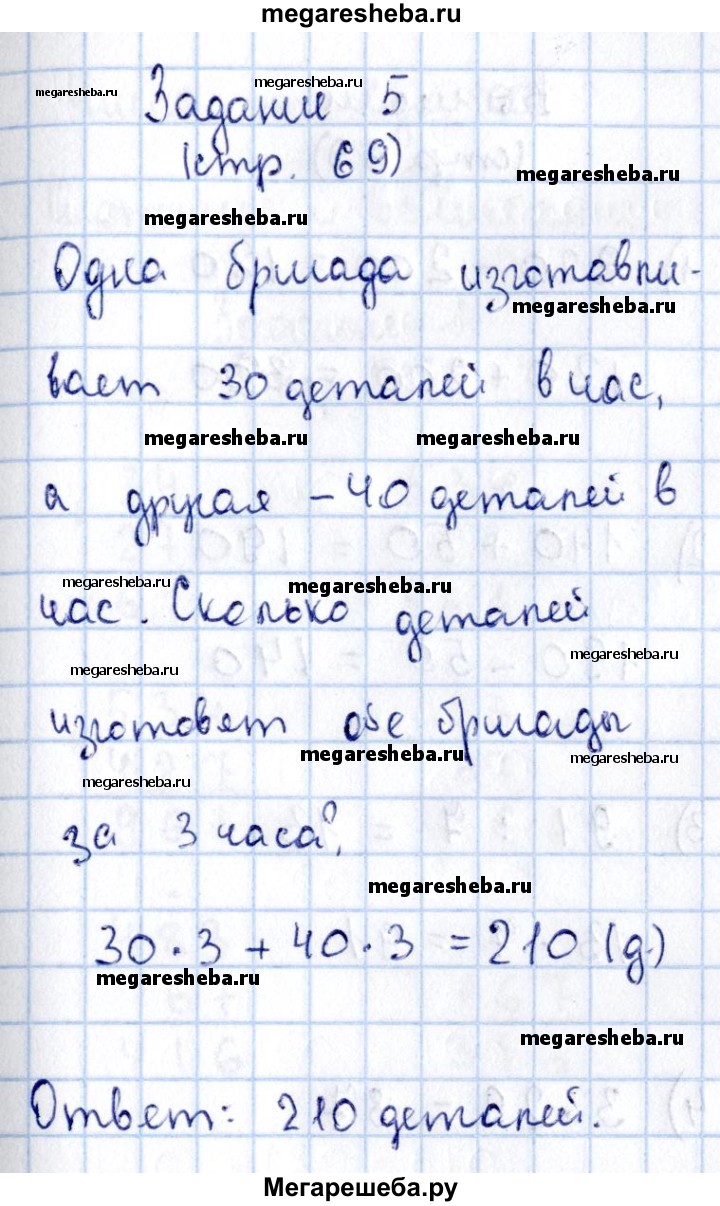 megaresheba.ru
megaresheba.ru
megaresheba.ru
Задание 5
(стр. 69)
megaresheba.ru
megaresheba.ru
Одна бригада изготавли-
megaresheba.ru
вает 30 деталей в час,
megaresheba.ru megaresheba.ru
а другая – 40 деталей в
megaresheba.ru megaresheba.ru
час. Сколько деталей
megaresheba.ru
megaresheba.ru
изготовят обе бригады
megaresheba.ru megaresheba.ru
megaresheba.ru
за 3 часа?
megaresheba.ru
30 · 3 + 40 · 3 = 210 (д.)
megaresheba.ru
megaresheba.ru
Ответ: 210 деталей.
Мегарешеба.ру